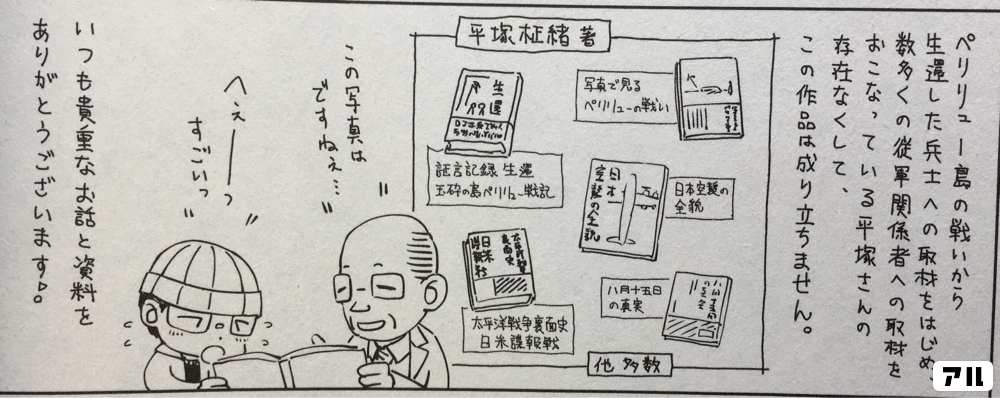 ペリリュー島の戦いから
生還した兵士への取材をはじめ、
数多くの従軍関係者への取材を
おこなっている平塚さんの
存在なくして、
この作品は成り立ちません。
平塚柾緒著
写真で見る
ペリリューの戦い
生還
証言記録 生還
玉砕の島ペリリュー戦記
日本空襲の全貌
日本空襲の
全貌
太平洋戦争
裏面史
日米
諜報戦
太平洋戦争裏面史
日米諜報戦
八月十五日
の真実
八月十五日
の真実
他多数
この写真は
ですねぇ…
へぇーーっ
すごいっ
いつも貴重なお話と資料を
ありがとうございます!。
アル